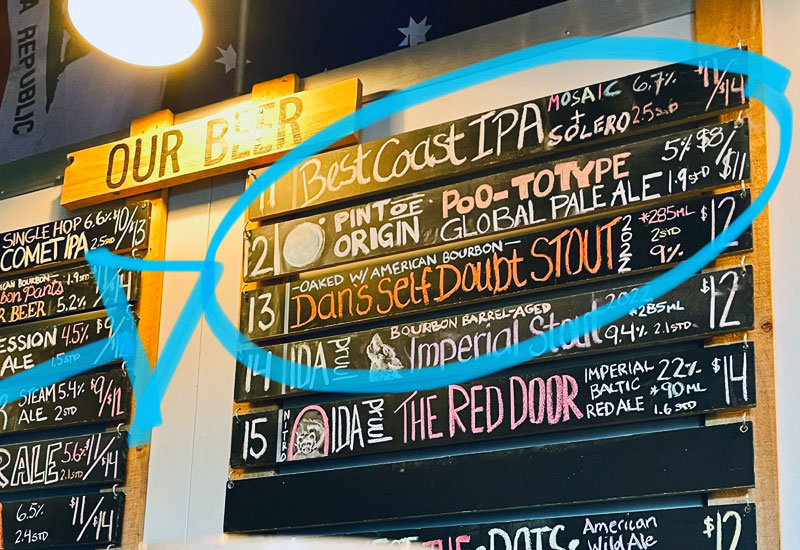 A REPUBLIC
OUR BEER
SINGLE HOP 6.6% $10/13
COMET IPA 2.5STD
BOURBON 1.9STD
Pants
BEER 5.2% 11/14
ESSION 4.5% $9
ALE 1.5STD
STEAM 5.4% $9/$12
ALE 2STD
RALE 5.6% $11/14
2.1STD
6.5% $11/$14
2.4STD
11 Best Coast IPA MOSAIC + SOLERO 6.7% 2.5STD $11/$14
12 PINT OF ORIGIN POO-TOTYPE 5% $8/$11
GLOBAL PALE ALE 1.9STD
13 -OAKED W/ AMERICAN BOURBON-
Dan's Self Doubt STOUT 2022 *285ML 2STD 9% $12
14 IDA pruul BOURBON BARREL-AGED 2022 *285ML
Imperial Stout 9.4% 2.1STD $12
15 NITRO IDA pruul THE RED DOOR IMPERIAL BALTIC RED ALE 22% *90ML 1.6STD $14
DOTS
American
Wild Ale $12